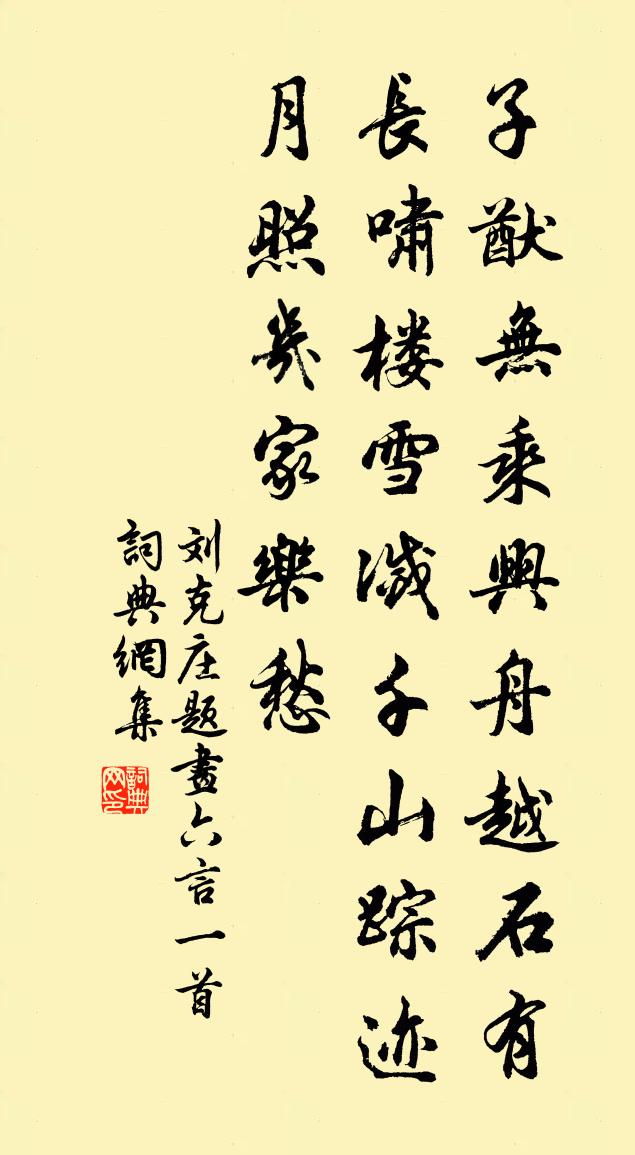 子猷無乘興舟越石有
長嘯楼雪滅千山踪迹
月照幾家樂愁
刘克庄题畫六言一首
詞典網集
詞典网印